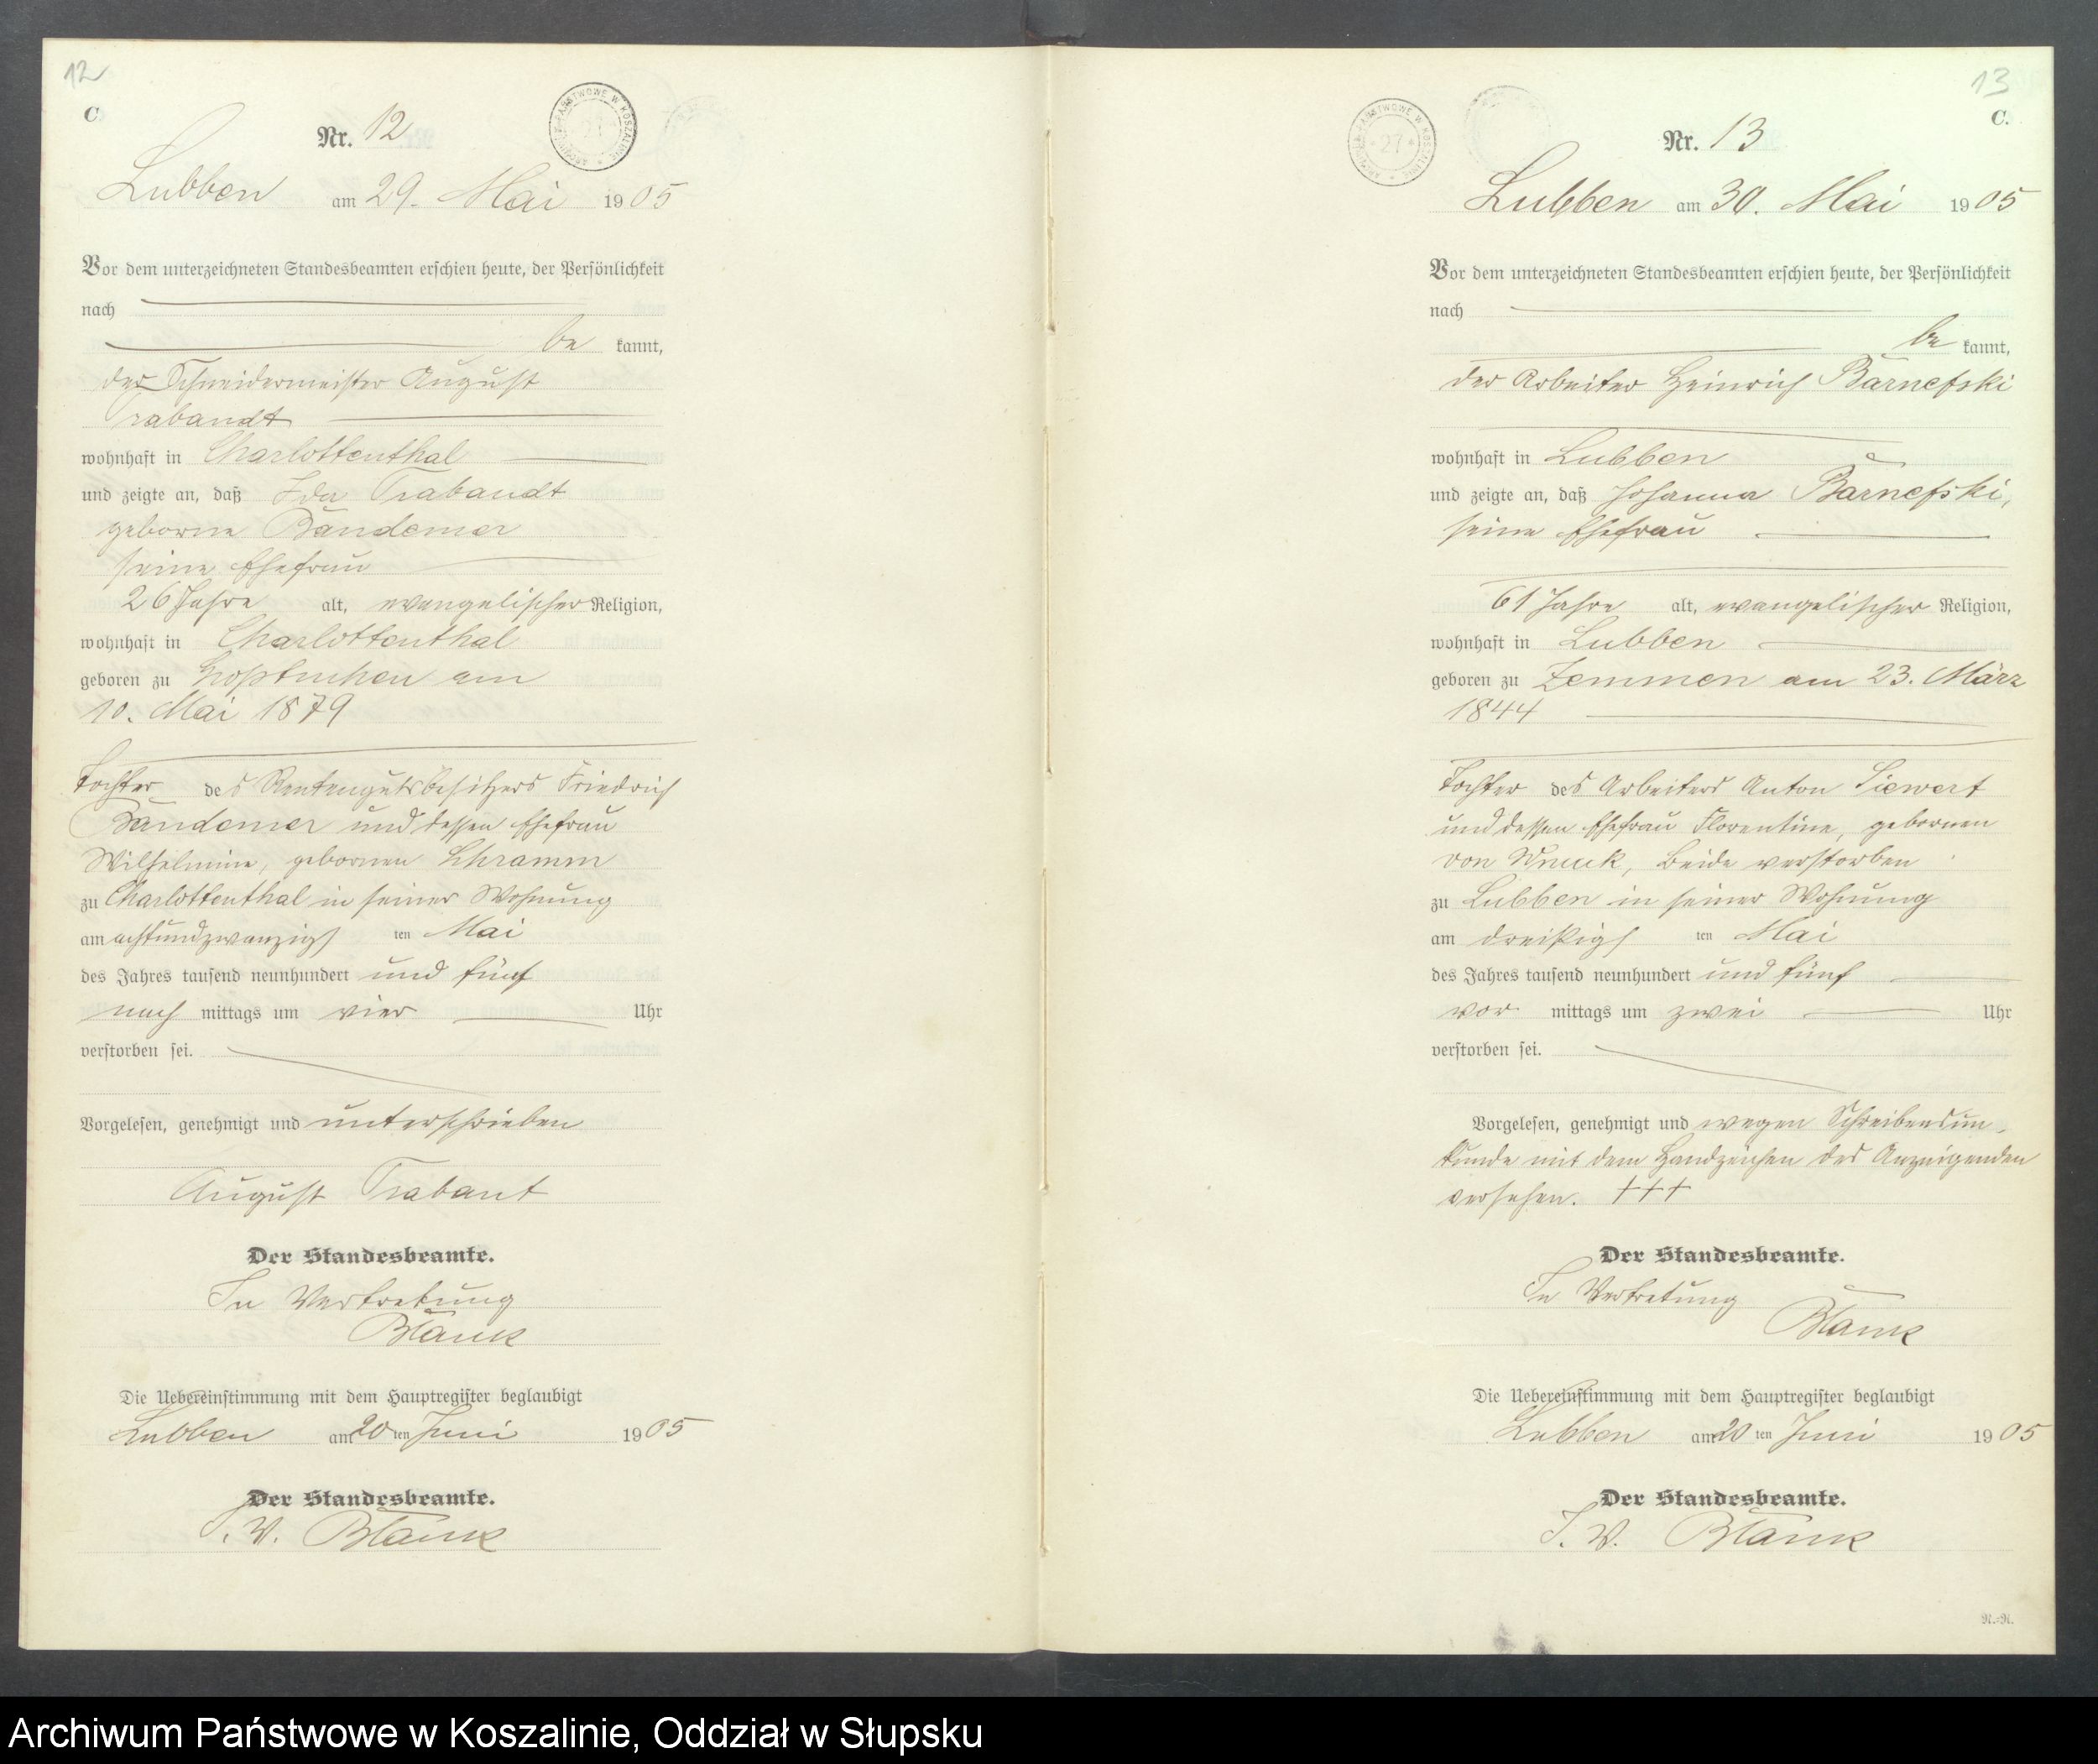 12
C
Nr. 12
ARCHIWUM PAŃSTWOWE W KOSZALINIE * 27
Lubben am 29. Mai 1905
Vor dem unterzeichneten Standesbeamten erschien heute, der Persönlichkeit
nach
be kannt,
der Schneidermeister August
Trabandt
wohnhaft in Charlottenthal
und zeigte an, daß Ida Trabandt
geborne Bandemer
seine Ehefrau
26 Jahre alt, evangelischer Religion,
wohnhaft in Charlottenthal
geboren zu am
10. Mai 1879
Tochter des Rentengutsbesitzers Friedrich
Bandemer und dessen Ehefrau
Wilhelmine, gebornen Schramm
zu Charlottenthal in seiner Wohnung
am achtundzwanzigs ten Mai
des Jahres tausend neunhundert und fünf
nach mittags um vier Uhr
verstorben sei.
Vorgelesen, genehmigt und unterschrieben
August Trabant
Der Standesbeamte.
In Vertretung
Blank
Die Uebereinstimmung mit dem Hauptregister beglaubigt
Lubben am 20 ten Juni 1905
Der Standesbeamte.
I. V. Blank
13
C.
Nr. 13
ARCHIWUM PAŃSTWOWE W KOSZALINIE * 27 *
Lubben am 30. Mai 1905
Vor dem unterzeichneten Standesbeamten erschien heute, der Persönlichkeit
nach
be kannt,
der Arbeiter Heinrich Barnefski
wohnhaft in Lubben
und zeigte an, daß Johanna Barnefski,
seine Ehefrau
61 Jahre alt, evangelischer Religion,
wohnhaft in Lubben
geboren zu Zemmen am 23. März
1844
Tochter des Arbeiters Anton Siewert
und dessen Ehefrau Florentine, gebornen
von Wnuck, beide verstorben
zu Lubben in seiner Wohnung
am dreißigs ten Mai
des Jahres tausend neunhundert und fünf
vor mittags um zwei Uhr
verstorben sei.
Vorgelesen, genehmigt und wegen Schreibensun-
kunde mit dem Handzeichen des Anzeigenden
versehen. +++
Der Standesbeamte.
In Vertretung
Blank
Die Uebereinstimmung mit dem Hauptregister beglaubigt
Lubben am 20 ten Juni 1905
Der Standesbeamte.
I. V. Blank
R.-R.
Archiwum Państwowe w Koszalinie, Oddział w Słupsku